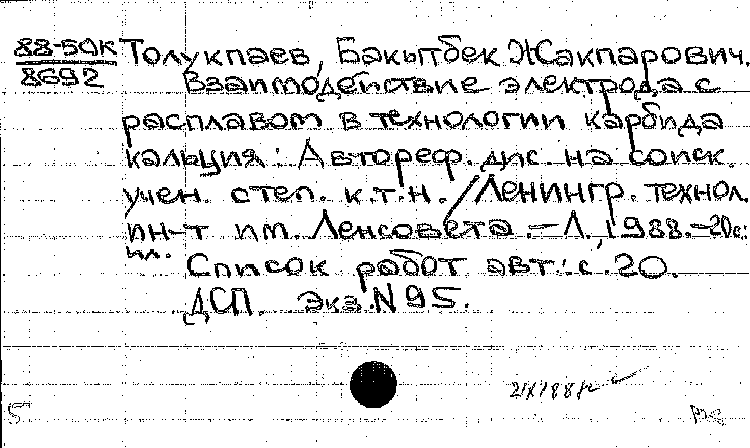 88-50К Толукпаев, Бакытбек Жакпарович.
8692 Взаимодействие электрода с
расплавом в технологии карбида
кальция: Автореф. дис. на соиск.
учен. степ. к.т.н. / Ленингр. технол.
ин-т им. Ленсовета. – Л., 1988. – 20с.:
ил.
Список работ авт.: с. 20.
ДСП. Экз. N 95.
5